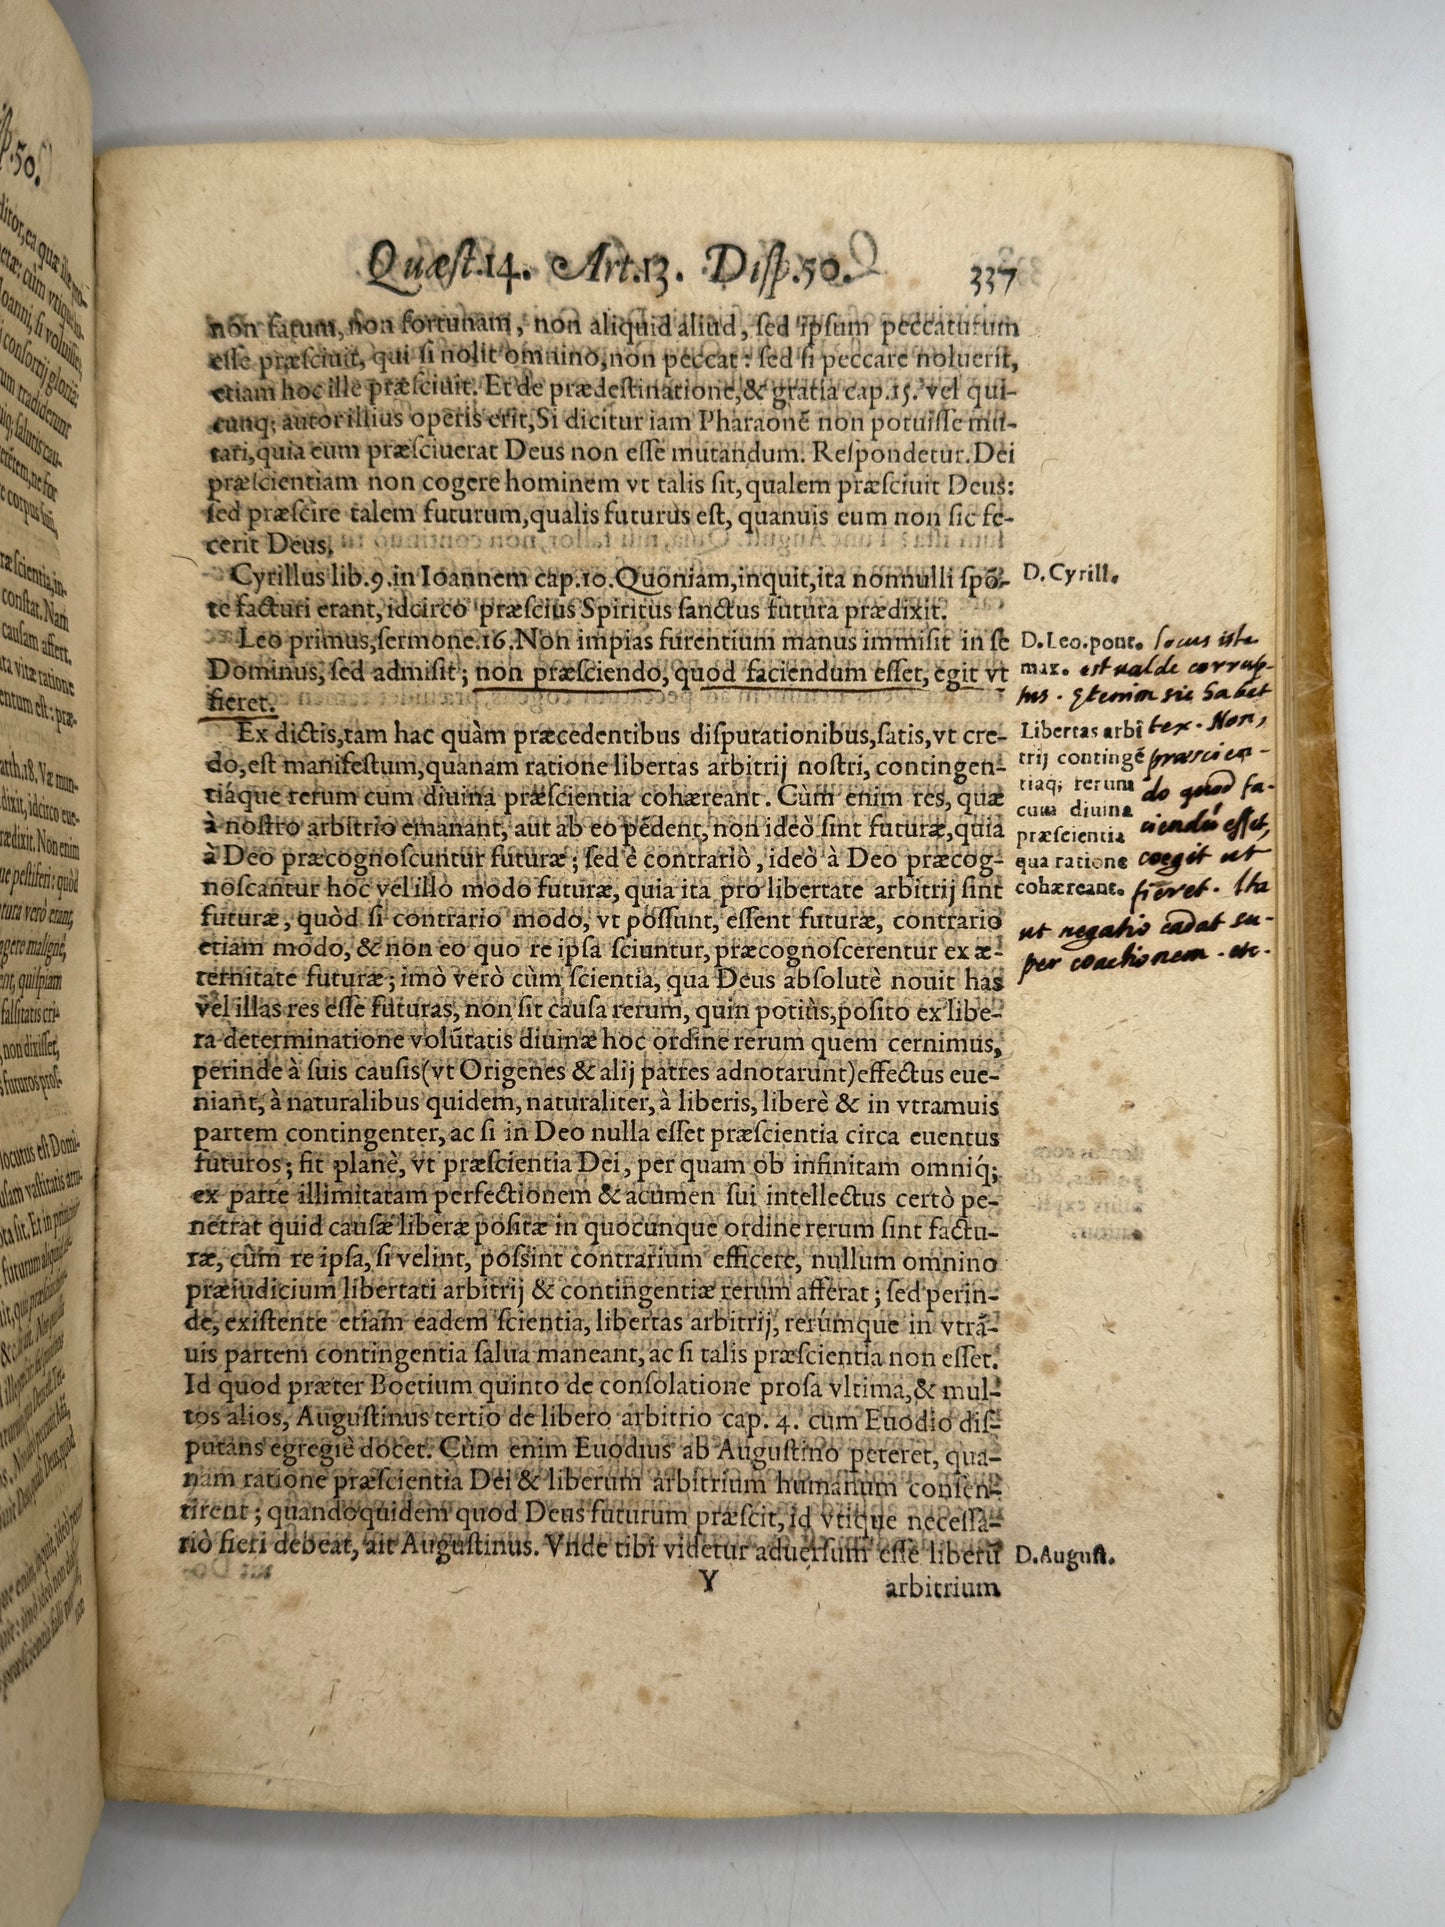 Quæſt.14. Art.13. Diſp.50. 337
non fatum, non fortunam, non aliquid aliud, ſed ipſum peccaturum
eſſe præſciuit, qui ſi nolit omnino, non peccat: ſed ſi peccare noluerit,
etiam hoc ille præſciuit. Et de prædeſtinatione, & gratia cap.15. vel qui-
cunq; autor illius operis erit, Si dicitur iam Pharaonẽ non potuiſſe mu-
tari, quia eum præſciuerat Deus non eſſe mutandum. Reſpondetur. Dei
præſcientiam non cogere hominem vt talis ſit, qualem præſciuit Deus:
ſed præſcire talem futurum, qualis futurus eſt, quanuis eum non ſic fe-
cerit Deus.
Cyrillus lib.9. in Ioannem cap.10. Quoniam, inquit, ita nonnulli ſpõ-
te facturi erant, idcirco præſcius Spiritus ſanctus futura prædixit.
Leo primus, ſermone.16. Non impias furentium manus immiſit in ſe
Dominus, ſed admiſit; non præſciendo, quod faciendum eſſet, egit vt
fieret.
Ex dictis, tam hac quàm præcedentibus diſputationibus, ſatis, vt cre-
do, eſt manifeſtum, quanam ratione libertas arbitrij noſtri, contingen-
tiáque rerum cum diuina præſcientia cohæreant. Cùm enim res, quæ
à noſtro arbitrio emanant, aut ab eo pẽdent, non ideò ſint futuræ, quia
à Deo præcognoſcuntur futuræ; ſed è contrariò, ideò à Deo præcog-
noſcantur hoc vel illo modo futuræ, quia ita pro libertate arbitrij ſint
futuræ, quòd ſi contrario modo, vt poſſunt, eſſent futuræ, contrario
etiam modo, & non eo quo re ipſa ſciuntur, præcognoſcerentur ex æ-
ternitate futuræ; imò verò cùm ſcientia, qua Deus abſolutè nouit has
vel illas res eſſe futuras, non ſit cauſa rerum, quin potiùs, poſito ex libe-
ra determinatione volũtatis diuinæ hoc ordine rerum quem cernimus,
perinde à ſuis cauſis (vt Origenes & alij patres adnotarunt) effectus eue-
niant, à naturalibus quidem, naturaliter, à liberis, liberè & in vtramuis
partem contingenter, ac ſi in Deo nulla eſſet præſcientia circa euentus
futuros; fit planè, vt præſcientia Dei, per quam ob infinitam omniq́;
ex parte illimitatam perfectionem & acumen ſui intellectus certò pe-
netrat quid cauſæ liberæ poſitæ in quocunque ordine rerum ſint factu-
ræ, cùm re ipſa, ſi velint, poſſint contrarium efficere, nullum omnino
præiudicium libertati arbitrij & contingentiæ rerum afferat; ſed perin-
de, exiſtente etiam eadem ſcientia, libertas arbitrij, rerúmque in vtrã-
uis partem contingentia ſalua maneant, ac ſi talis præſcientia non eſſet.
Id quod præter Boetium quinto de conſolatione proſa vltima, & mul-
tos alios, Auguſtinus tertio de libero arbitrio cap. 4. cum Euodio diſ-
putans egregiè docet. Cùm enim Euodius ab Auguſtino peteret, qua-
nam ratione præſcientia Dei & liberum arbitrium humanum conſen-
tirent; quandoquidem quod Deus futurum præſcit, id vtique neceſſa-
riò fieri debeat, ait Auguſtinus. Vnde tibi videtur aduerſum eſſe liberũ
Y arbitrium
D. Cyrill.
D. Leo. pont.
max.
locus iste
est valde corrup-
tus. etenim sic habet
tex. Non,
præscien-
do quod fa-
ciendũ esset,
coegit ut
fieret. Ita
ut negatio cadat su-
per coactionem. etc.
Libertas arbi
trij contingẽ
tiaq; rerum
cum diuina
præſcientia
qua ratione
cohæreant.
D. Auguſt.